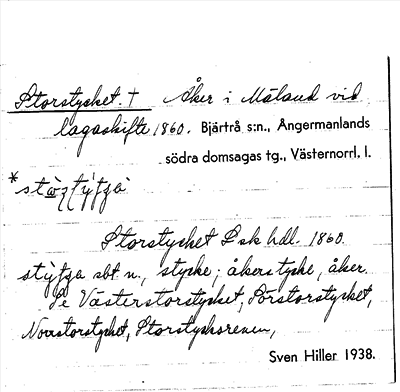 Storstycket. † Åker i Måland vid
lagaskifte 1860. Bjärtrå s:n., Ångermanlands
södra domsagas tg., Västernorrl. l.
Storstycket Lsk hdl. 1860
sbt n., stycke; åkerstycke, åker.
Se Västerstorstycket, Sörstorstycket,
Norrstorstycket, Storstycksrenen,
Sven Hiller 1938.